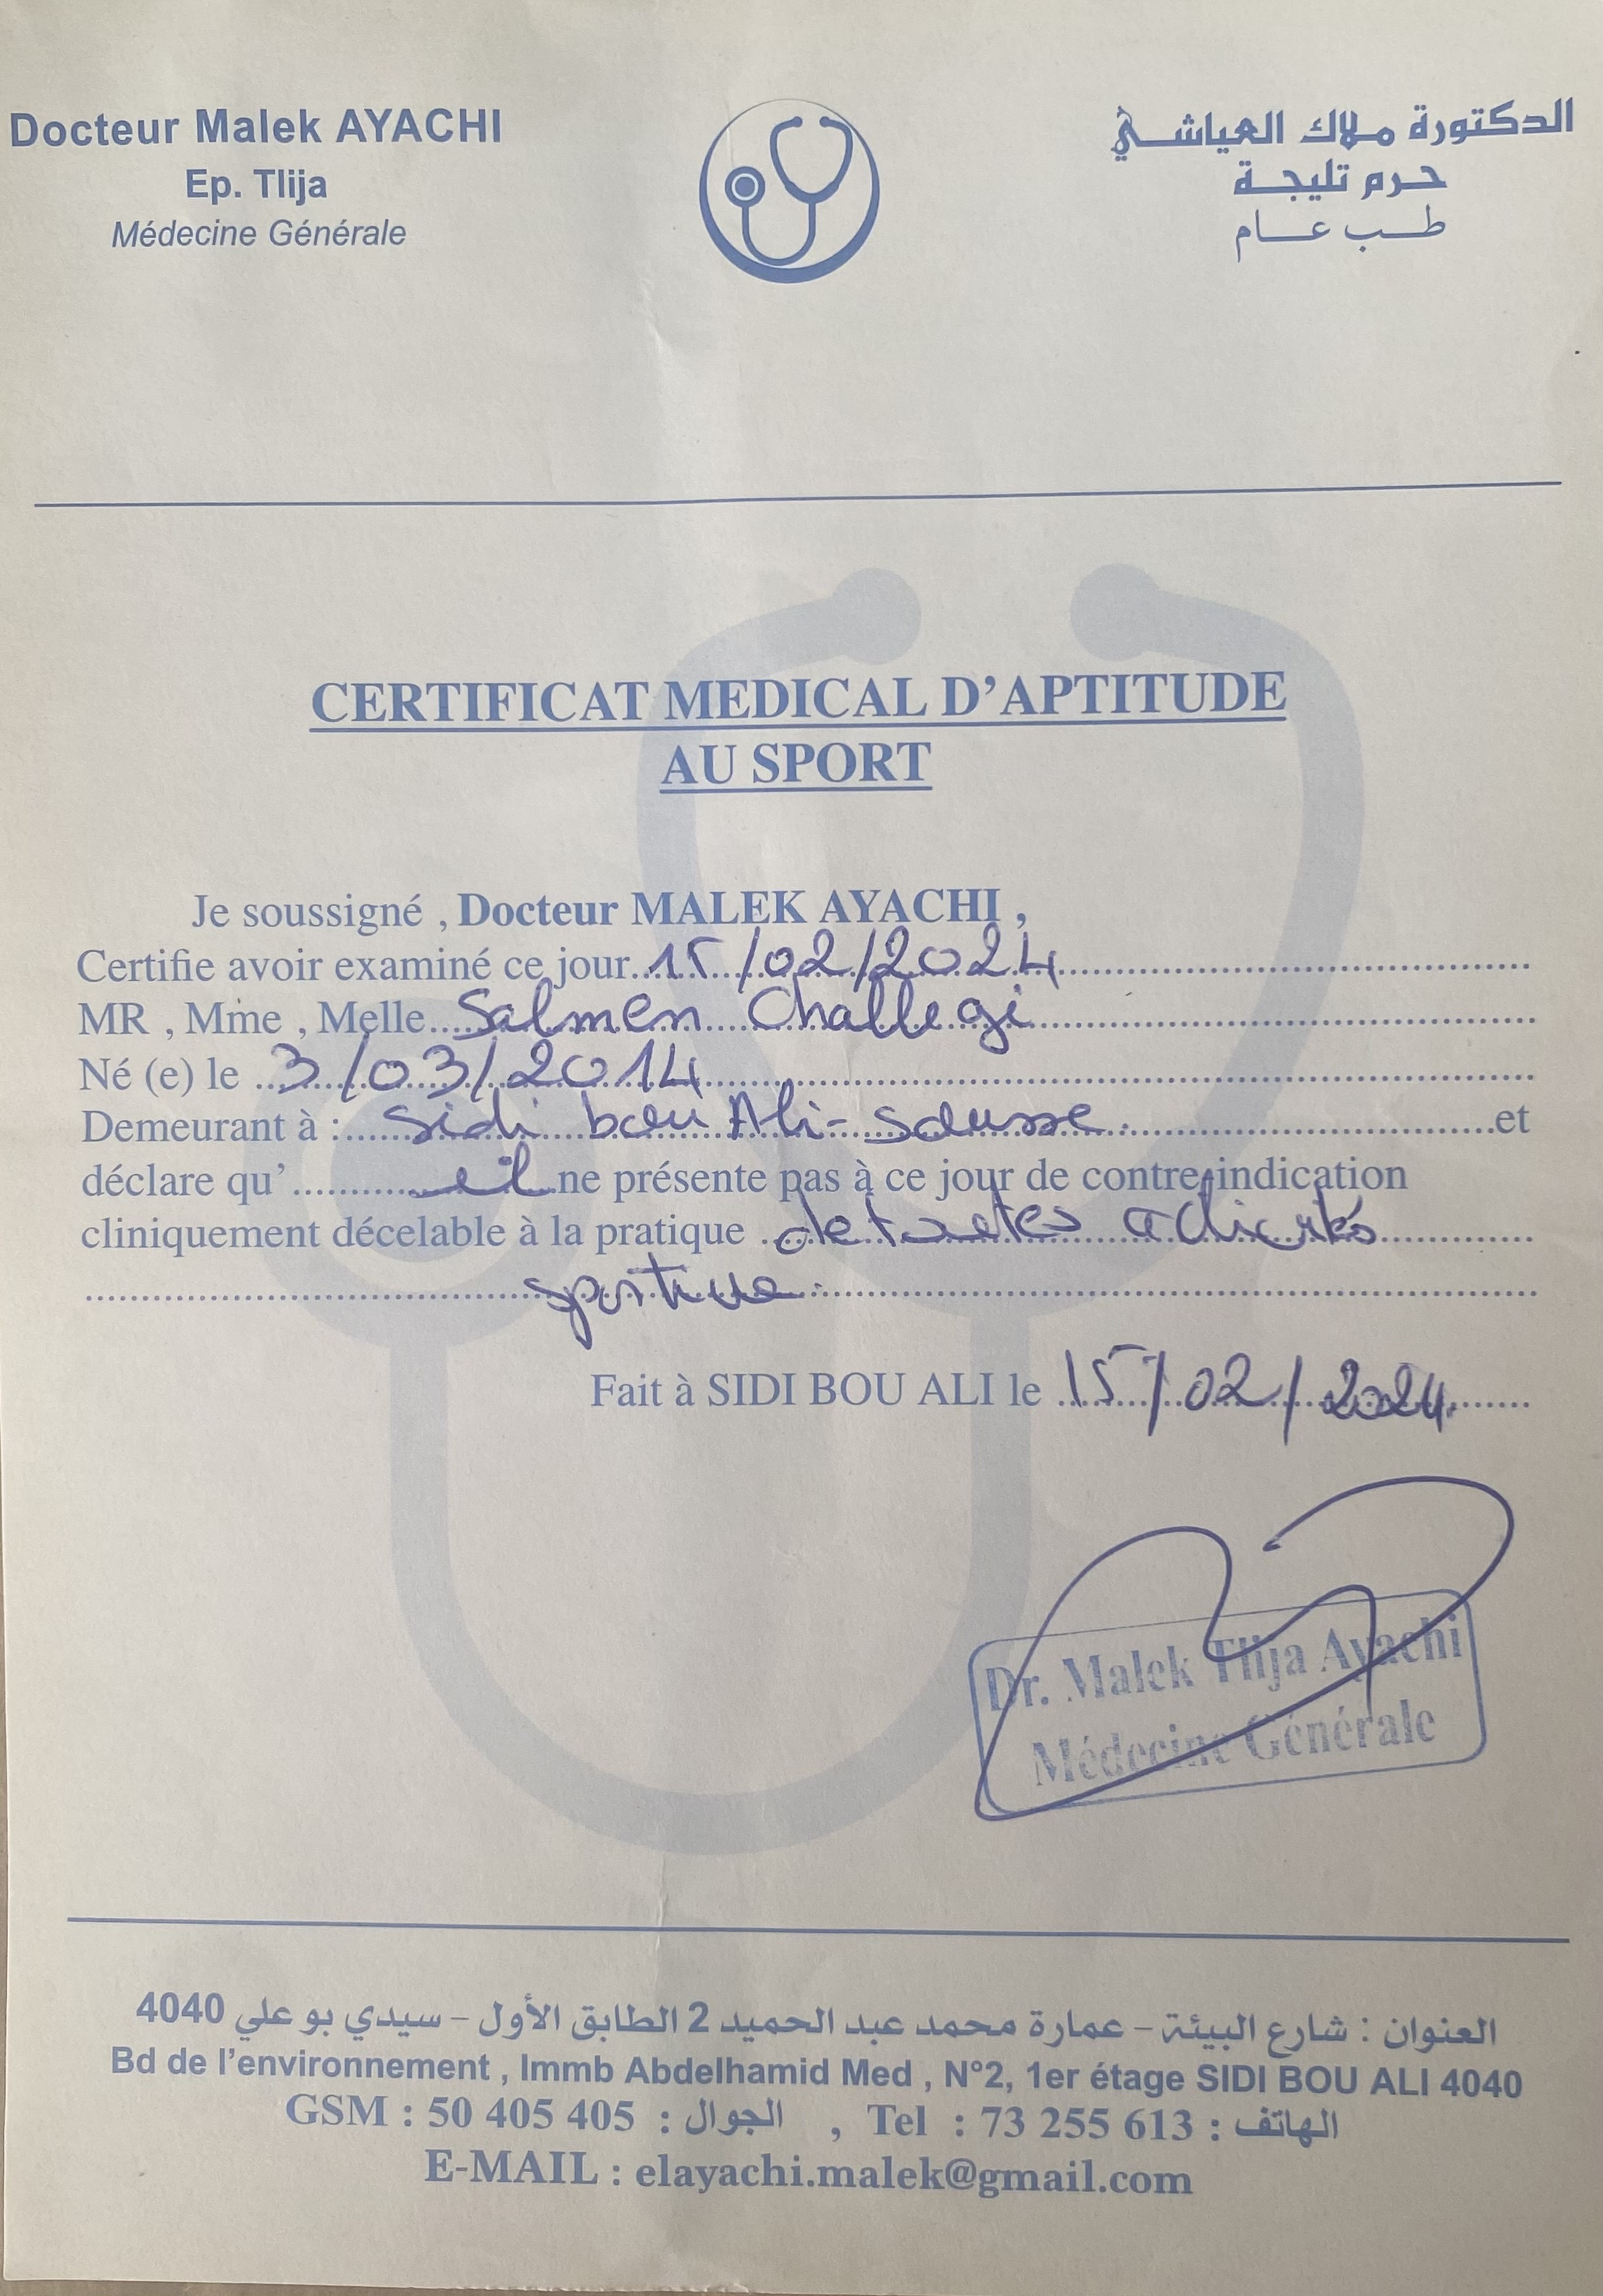 Docteur Malek AYACHI
Ep. Tlija
Médecine Générale
الدكتورة ملاك العياشي
حرم تليجة
طب عام
CERTIFICAT MEDICAL D'APTITUDE
AU SPORT
Je soussigné , Docteur MALEK AYACHI ,
Certifie avoir examiné ce jour 15/02/2024
MR , Mme , Melle Salmen Challegi
Né (e) le 3/03/2014
Demeurant à : Sidi bou Ali-Sousse. et
déclare qu' il ne présente pas à ce jour de contre-indication
cliniquement décelable à la pratique de toutes activités
sportive.
Fait à SIDI BOU ALI le 15/02/2024.
Dr. Malek Tlija Ayachi
Médecine Générale
العنوان : شارع البيئة - عمارة محمد عبد الحميد 2 الطابق الأول - سيدي بو علي 4040
Bd de l'environnement , Immb Abdelhamid Med , N°2, 1er étage SIDI BOU ALI 4040
GSM : 50 405 405 : الجوال , Tel : 73 255 613 : الهاتف
E-MAIL : elayachi.malek@gmail.com